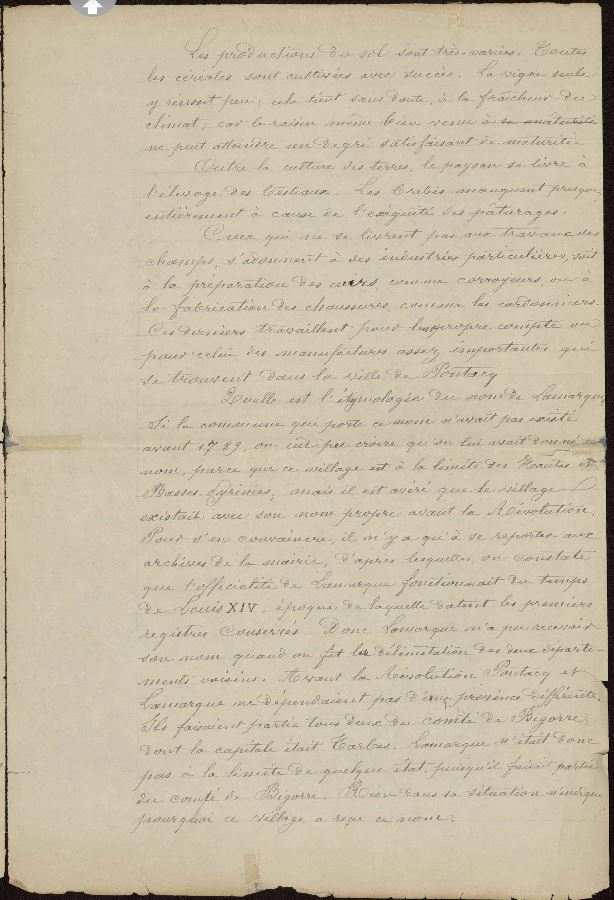 Les productions du sol sont très-variées. Toutes
les céréales sont cultivées avec succès. La vigne seule
y réussit peu; cela tient sans doute, à la fraîcheur du
climat; car le raisin même bien venu à sa maturité
ne peut atteindre un degré satisfaisant de maturité.
Outre la culture des terres, le paysan se livre à
l'élevage des bestiaux. Les brebis manquent presque
entièrement à cause de l'exiguité des pâturages.
Ceux qui ne se livrent pas aux travaux des
champs, s'adonnent à des industries particulières, soit
à la préparation des cuirs, comme corroyeurs, ou à
la fabrication des chaussures, comme les cordonniers.
Ces derniers travaillent pour leur propre compte ou
pour celui des manufactures assez importantes qui
se trouvent dans la ville de Pontacq
Quelle est l'étymologie du nom de Lamarque
Si la commune qui porte ce nom n'avait pas existé
avant 1789, on eût pu croire qu'on lui avait donné ce
nom, parce que ce village est à la limite des Hautes et
Basses-Pyrénées, mais il est avéré que le village
existait avec son nom propre avant la Révolution.
Pour s'en convaincre, il n'y a qu'à se reporter aux
archives de la mairie, d'après lesquelles, on constate
que l'officialité de Lamarque fonctionnait du temps
de Louis XIV, époque de laquelle datent les premiers
registres conservés. Donc Lamarque n'a pu recevoir
son nom quand on fit la délimitation des deux départe-
ments voisins. Avant la Révolution Pontacq et
Lamarque ne dépendaient pas d'une province différente.
Ils faisaient partie tous deux du comté de Bigorre
dont la capitale était Tarbes. Lamarque n'était donc
pas à la limite de quelque état, puisqu'il faisait partie
du comté de Bigorre. Rien dans sa situation n'indique
pourquoi ce village a reçu ce nom.